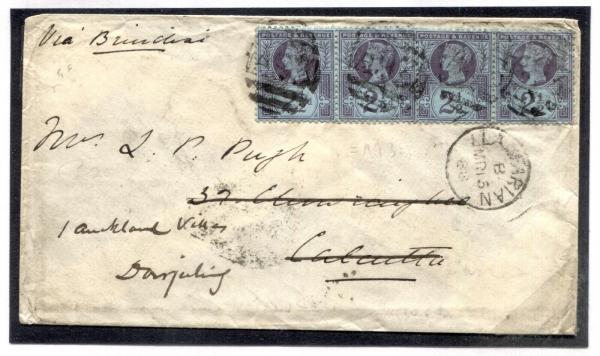 Via Brindisi
POSTAGE & REVENUE POSTAGE & REVENUE POSTAGE & REVENUE POSTAGE & REVENUE
2½ 2½ 2½ 2½
Mrs. L. P. Pugh
LLANARIAN
B
MR 15
88
37
1 Auckland Villas
Calcutta
Darjeeling